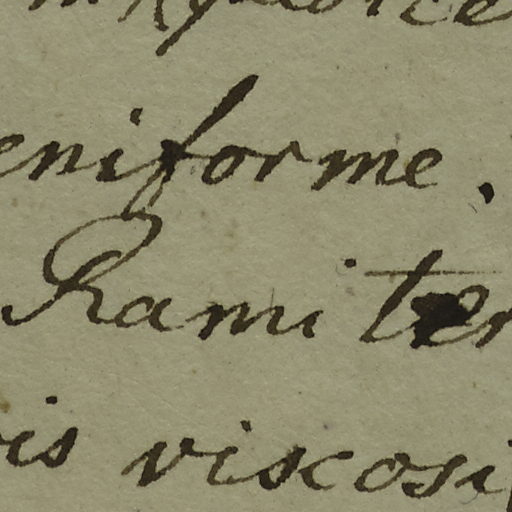 eniforme.
Rami ter
is viscosi